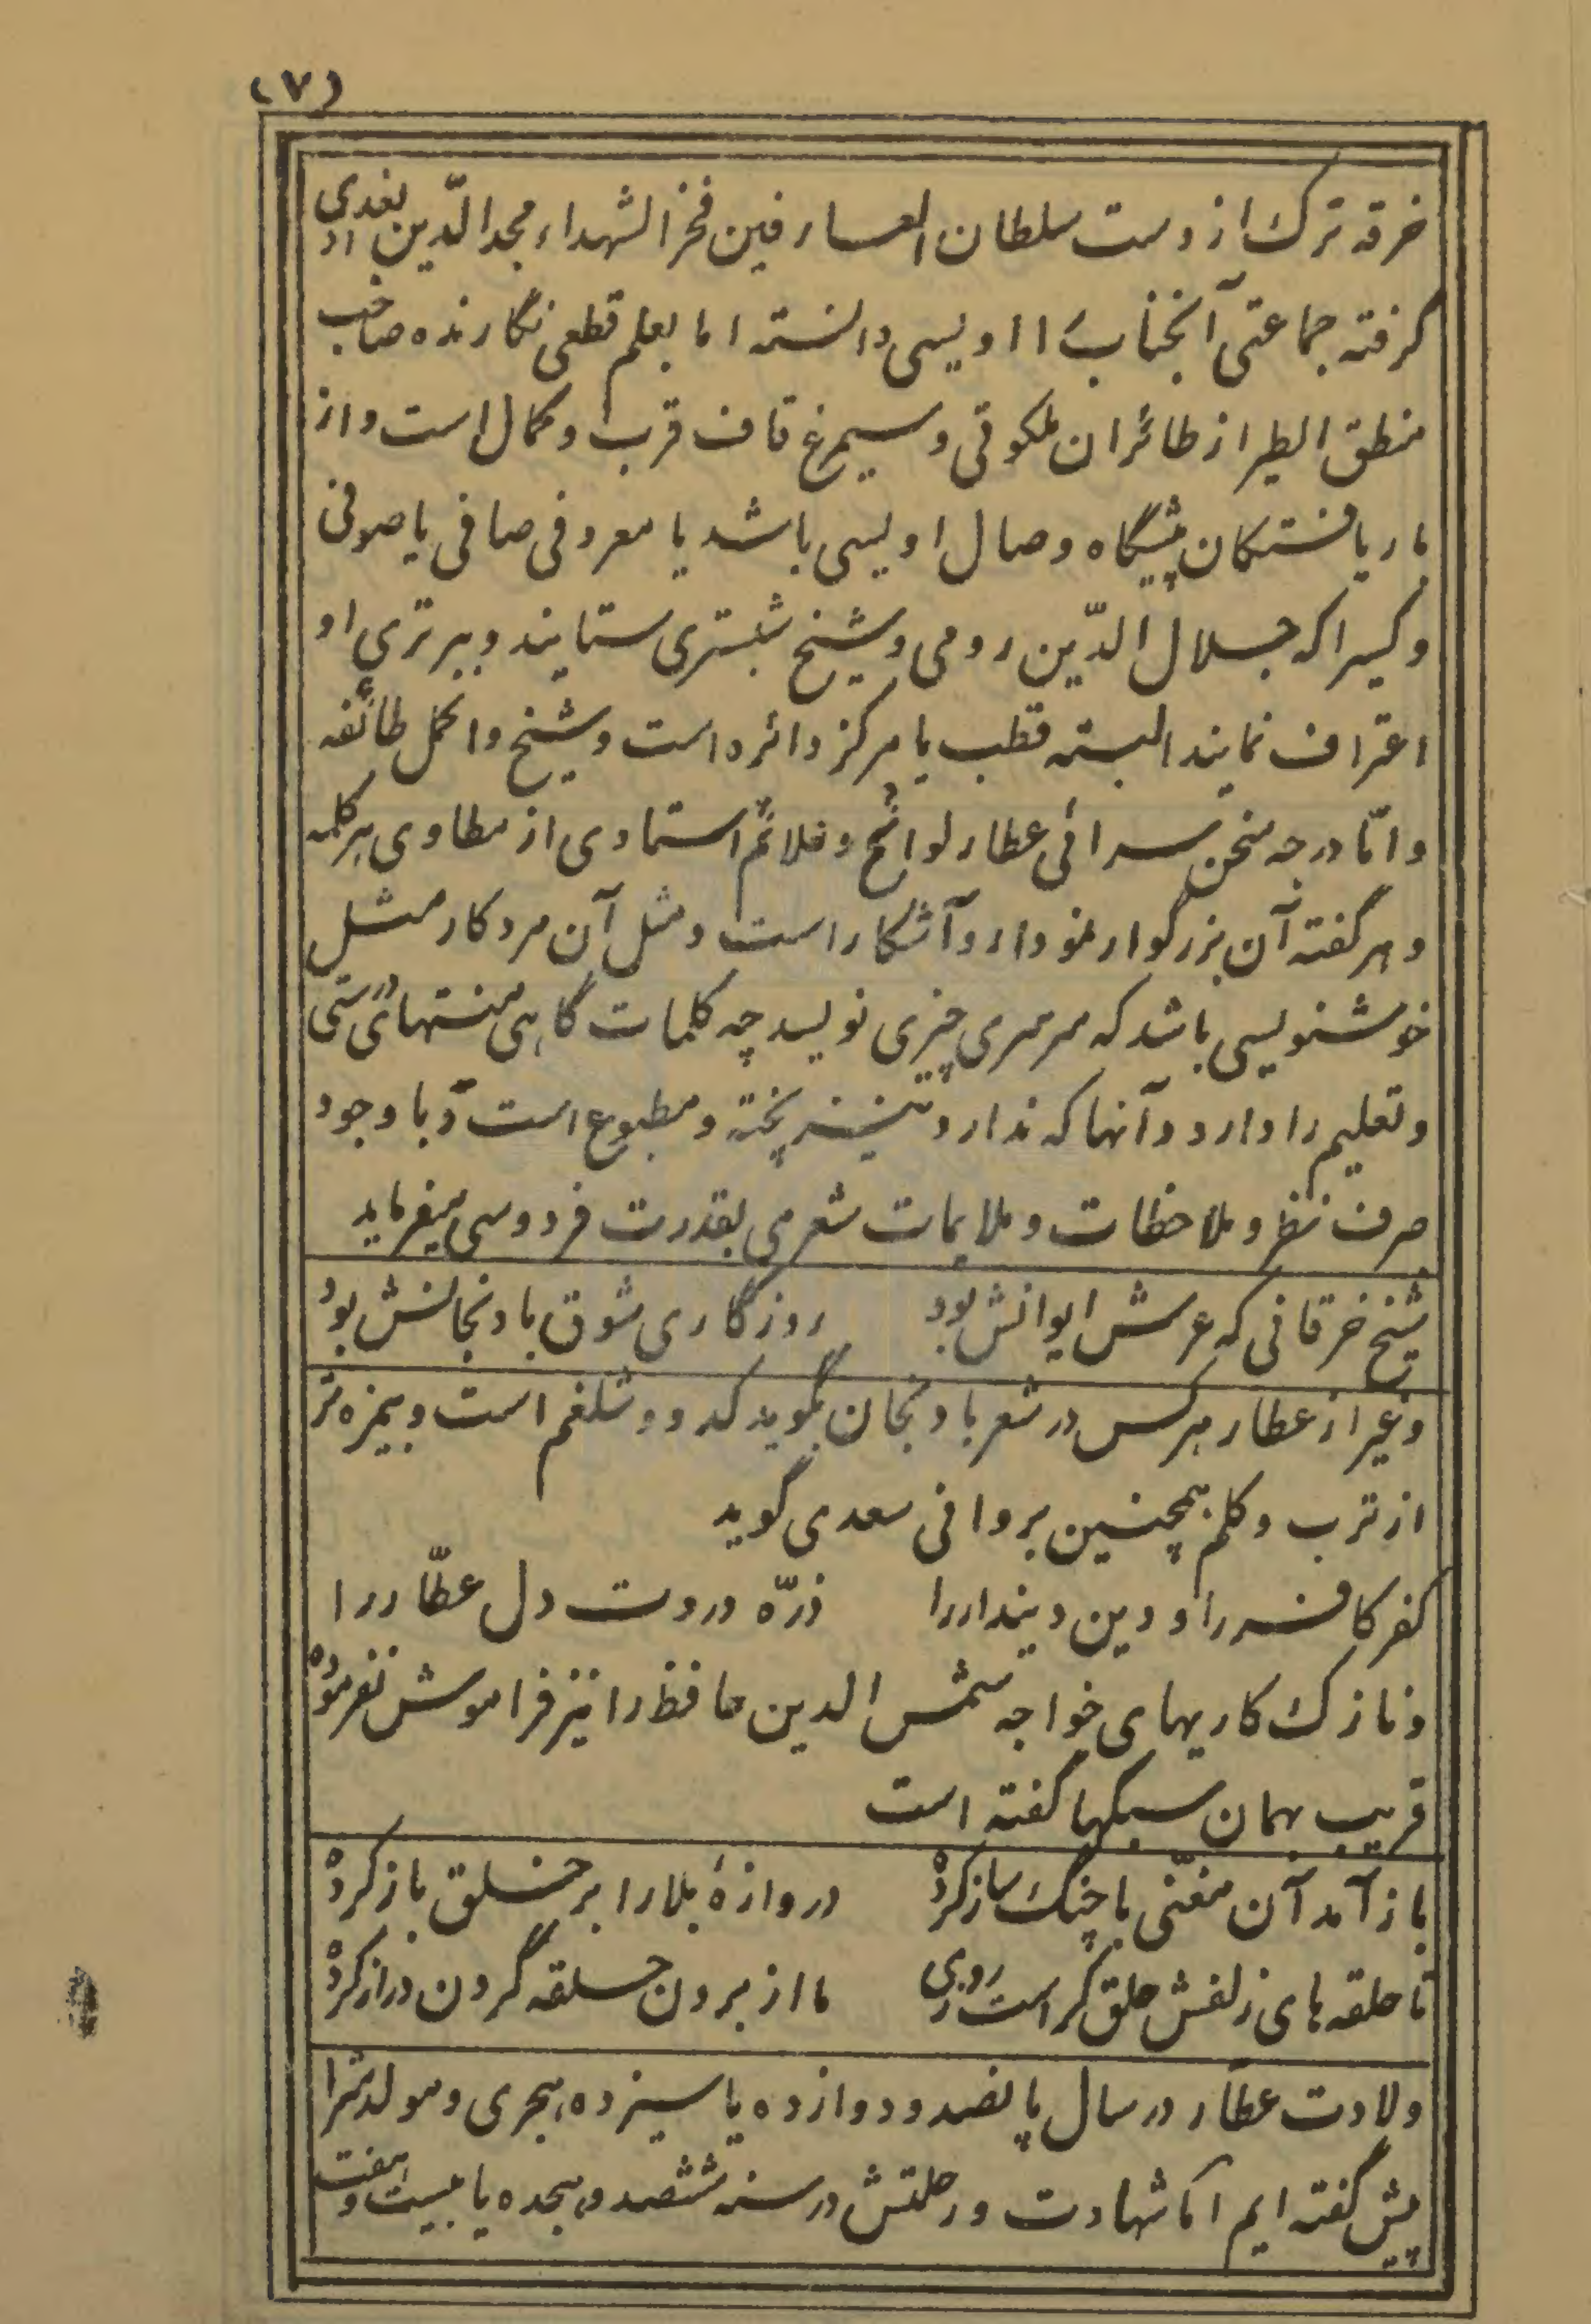 (۷)
خرقه ترک از دست سلطان العارفین فخر الشهداء مجد الدّین بغدادی
گرفته جماعتی آنجناب را اویسی دانسته اما بعلم قطعی نگارنده صاحب
منطق الطیر از طائران ملکوتی و سیمرغ قاف قرب و کمال است و از
بار یافتگان پیشگاه وصال اویسی باشد یا معروفی صافی یا صوفی
و کسیرا که جلال الدّین رومی و شیخ شبستری ستایند و ببرتری او
اعتراف نمایند البته قطب یا مرکز دائره است و شیخ و اکمل طائفه
و امّا درجه سخن سرائی عطار لوائح و علائم استادی از مطاوی هر کلمه
و هر گفته آن بزرگوار نمودار و آشکار است و مثل آن مرد کار مثل
خوشنویسی باشد که سرسری چیزی نویسد چه کلمات گاهی منتهای درستی
و تعلیم را دارد و آنها که ندارد نیز پخته و مطبوع است و با وجود
صرف نظر و ملاحظات و ملایمات شعر می بقدرت فردوسی میفرماید
شیخ خرقانی که عرش ایوانش بود روزگاری شوق بادنجانش بود
و غیر از عطار هر کس در شعر بادنجان بگوید کدو و شلغم است و بیمزه تر
از ترب و کلم همچنین بروانی سعدی گوید
کفر کافر را و دین دیندار را ذرّه دردت دل عطّار را
و نازک کاریهای خواجه شمس الدین حافظ را نیز فراموش نفرموده
قریب بهمان سبکها گفته است
باز آمد آن مغنّی با چنگ ساز کرده دروازهٔ بلا را بر خلق باز کرده
تا حلقه های زلفش حلق کراست روزی ما از برون حلقه گردن دراز کرده
ولادت عطّار در سال پانصد و دوازده یا سیزده هجری و مولدش را
پیش گفته ایم اما شهادت و رحلتش در سنه ششصد و هیجده یا بیست و هفت